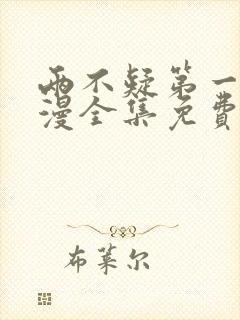 两不疑第一
漫全集免费
布莱尔